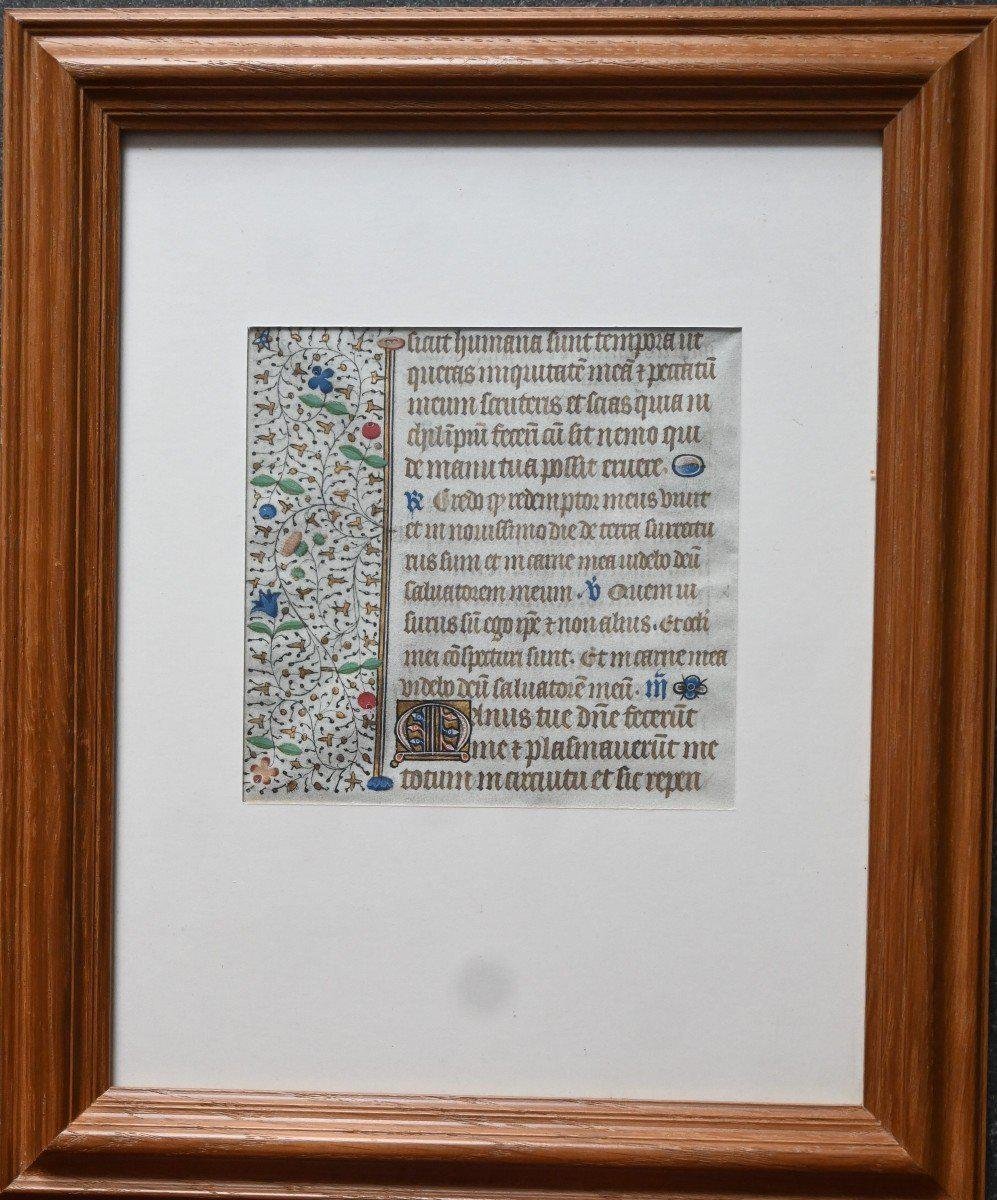 sicut humana sunt tempora ut
queras iniquitatē meā ⁊ peccatū
meum scruteris et scias quia ni
chil īpiū fecerī cū sit nemo qui
de manu tua possit eruere.
℟ Credo ꝙ redemptor meus viuit
et in nouissimo die de terra surrectu
rus sum et in carne mea videbo deū
saluatorem meum. ℣ Quem ui
surus sū ego ip̄e ⁊ non alius. Et oculi
mei cōspecturi sunt. Et in carne mea
videbo deū saluatorē meū.
Manus tue dn̄e fecerūt
me ⁊ plasmauerūt me
totum in circuitu et sic repen